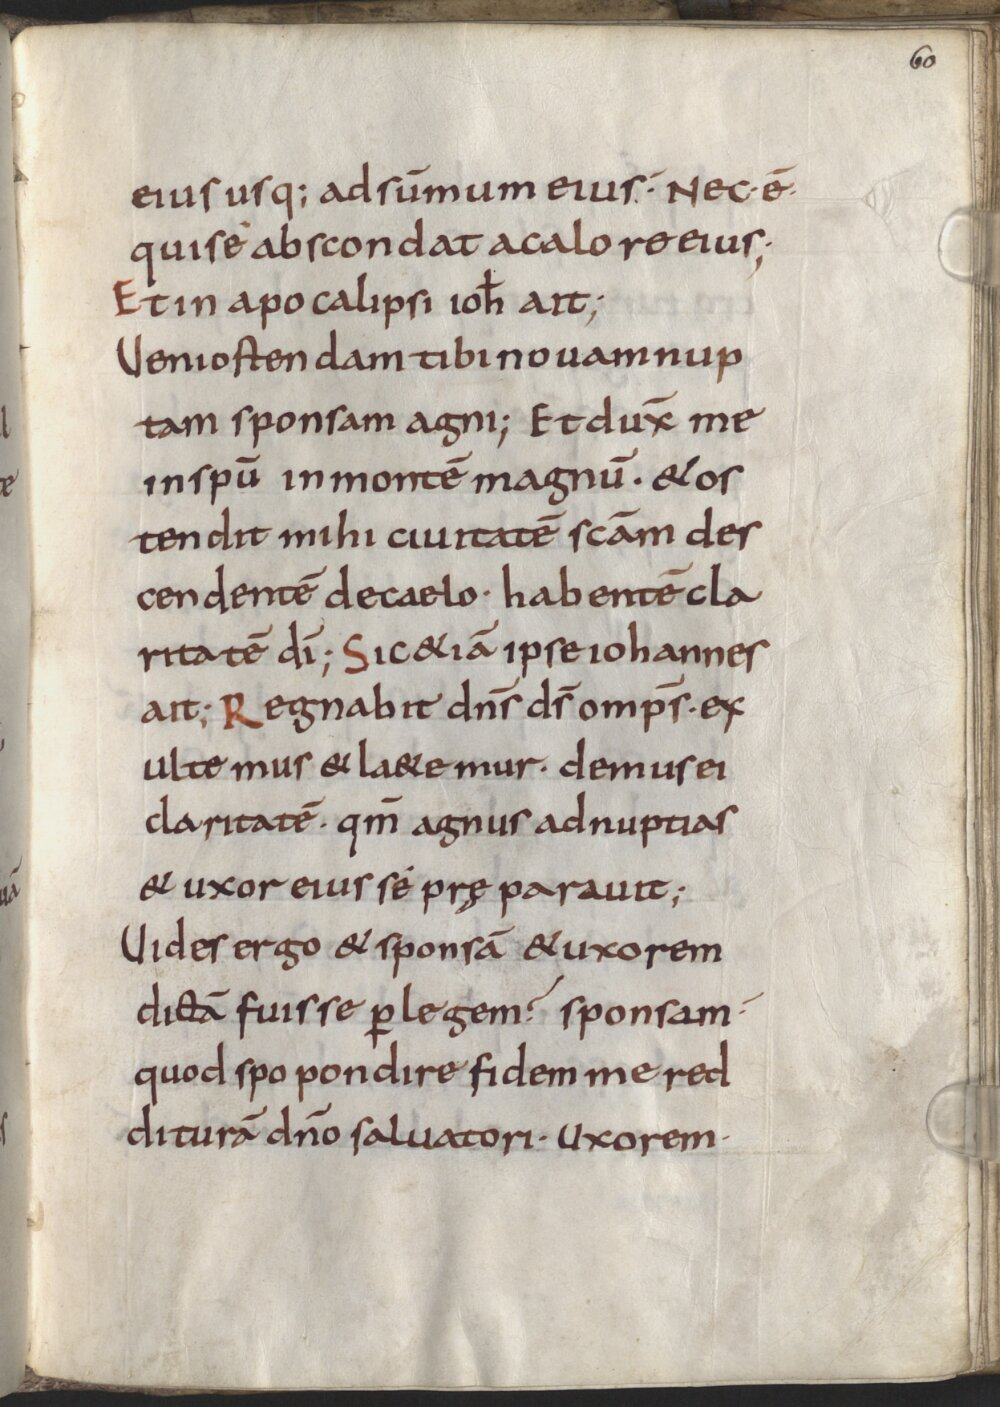 60
eius usq; ad sūmum eius·́ Nec·ē·
qui sé abscondat a calore eius;·
Et in apocalipsi ioħ ait;
Ueni ostendam tibi nouam nup
tam sponsam agni; Et dux̄ me
in spū in montē magnū· & os
tendit mihi ciuitatē scām des
cendentē de caelo· habentē cla
ritatē dī; Sic &iā ipse iohannes
ait; Regnabit dn̄s ds̄ omp̄s· ex
ultemus & la&emur· demus ei
claritatē· qm̄ agnus ad nuptias
& uxor eius sé pręparauit;
Uides ergo & sponsā & uxorem
dictā fuisse ꝑ legem?́ sponsam·́
quod spopondire fidem me red
diturā dn̄o saluatori· Uxorem·